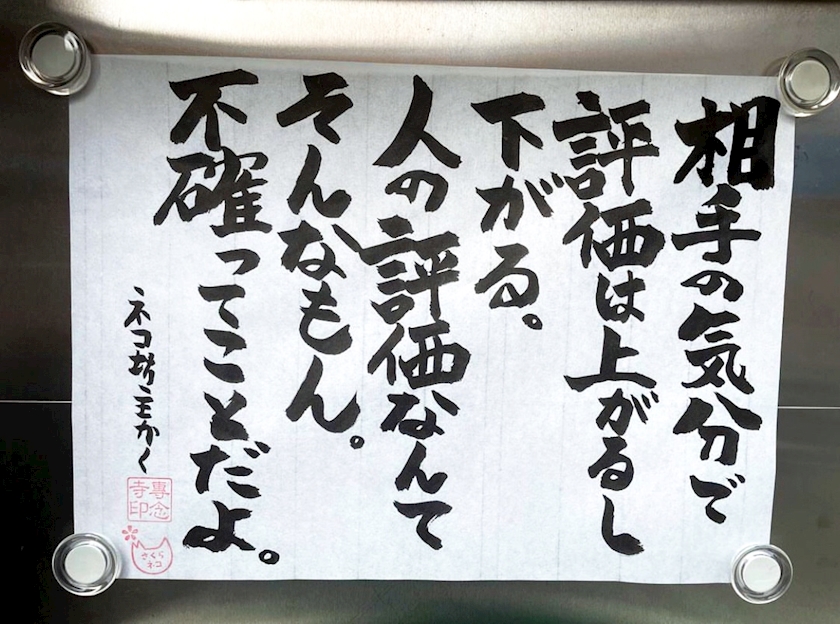 相手の気分で
評価は上がるし
下がる。
人の評価なんて
そんなもん。
不確ってことだよ。
ネコ坊主かく
専念
寺印
さくら
ネコ